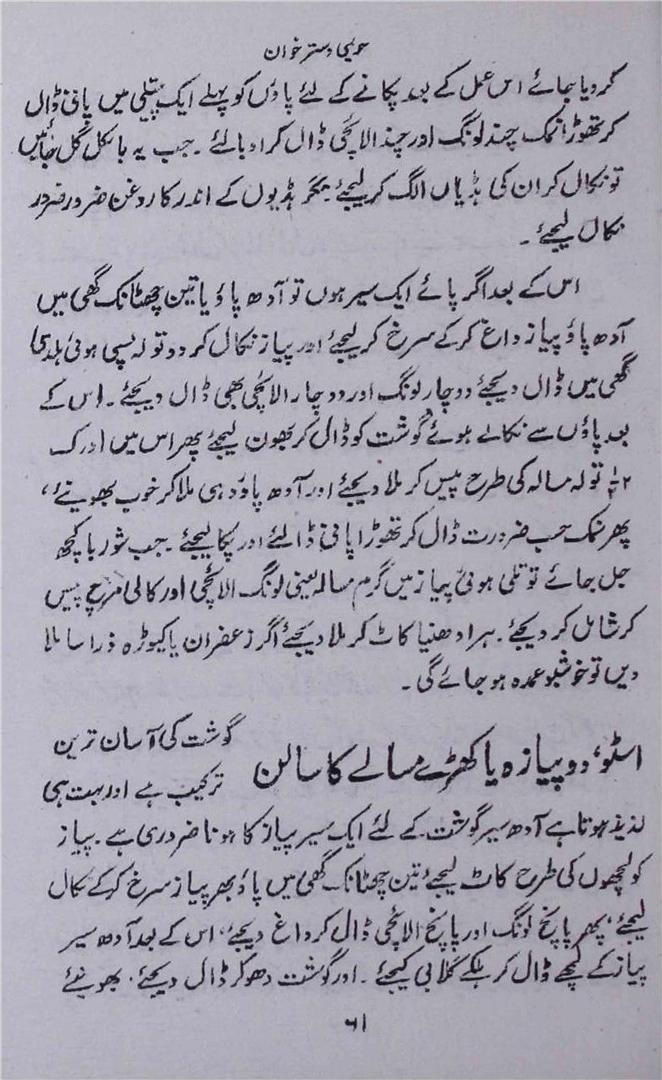 حویلی دستر خوان
کر دیا جائے اس عمل کے بعد پکانے کے لئے پاؤں کو پہلے ایک پتیلی میں پانی ڈال
کر تھوڑا نمک چند لونگ اور چند الائچی ڈال کر ابالئے ۔ جب یہ بالکل گل جائیں
تو نکال کر ان کی ہڈیاں الگ کر لیجئے مگر ہڈیوں کے اندر کا روغن ضرور ضرور
نکال لیجئے ۔
اس کے بعد اگر پائے ایک سیر ہوں تو آدھ پاؤ یا تین چھٹانک گھی میں
آدھ پاؤ پیاز داغ کر کے سرخ کر لیجئے اور پیاز نکال کر دو تولہ پسی ہوئی ہلدی
گھی میں ڈال دیجئے دو چار لونگ اور دو چار الائچی بھی ڈال دیجئے ۔ اس کے
بعد پاؤں سے نکالے ہوئے گوشت کو ڈال کر بھون لیجئے پھر اس میں ادرک
۲½ تولہ مسالہ کی طرح پیس کر ملا دیجئے اور آدھ پاؤ دہی ملا کر خوب بھونیئے ،
پھر نمک حسب ضرورت ڈال کر تھوڑا پانی ڈالئے اور پکا لیجئے ۔ جب شوربا کچھ
جل جائے تو تلی ہوئی پیاز میں گرم مسالہ یعنی لونگ الائچی اور کالی مرچ پیس
کر شامل کر دیجئے ۔ ہرا دھنیا کاٹ کر ملا دیجئے اگر زعفران یا کیوڑہ ذرا سا ملا
دیں تو خوشبو عمدہ ہو جائے گی ۔
اسٹو، دو پیازہ یا کھڑے مسالے کا سالن
گوشت کی آسان ترین
ترکیب ہے اور بہت ہی
لذیذ ہوتا ہے آدھ سیر گوشت کے لئے ایک سیر پیاز کا ہونا ضروری ہے ۔ پیاز
کو لچھوں کی طرح کاٹ لیجئے تین چھٹانک گھی میں پاؤ بھر پیاز سرخ کر کے نکال
لیجئے ، پھر پانچ لونگ اور پانچ الائچی ڈال کر داغ دیجئے ، اس کے بعد آدھ سیر
پیاز کے لچھے ڈال کر ہلکے گلابی کیجئے ۔ اور گوشت دھو کر ڈال دیجئے ، بھونیئے
۶۱